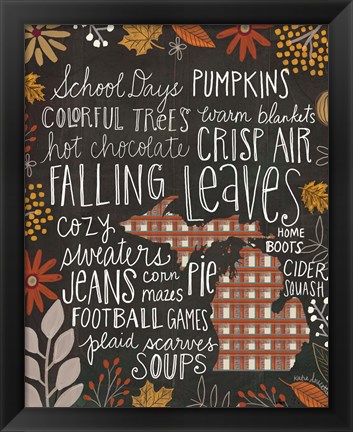 School Days PUMPKINS
COLORFUL TREES warm blankets
hot chocolate CRISP AIR
FALLING Leaves
cozy HOME
sweaters BOOTS
JEANS corn mazes PIE CIDER
SQUASH
FOOTBALL GAMES
plaid scarves
SOUPS
katie doucette